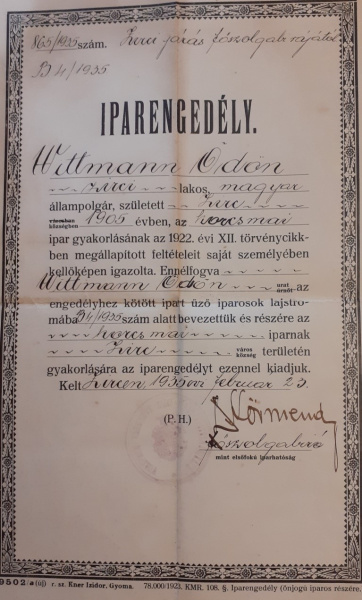 865/1935 szám. Zirci járás főszolgabírájától
B 4/1935
IPARENGEDÉLY.
Wittmann Ödön
zirci lakos, magyar
állampolgár, született Zirc
városban községben 1905 évben, az korcsmai
ipar gyakorlásának az 1922. évi XII. törvénycikk-
ben megállapított feltételeit saját személyében
kellőképen igazolta. Ennélfogva
Wittmann Ödön urat úrnőt az
engedélyhez kötött ipart űző iparosok lajstro-
mába B4/1935 szám alatt bevezettük és részére az
korcsmai iparnak
Zirc város község területén
gyakorlására az iparengedélyt ezennel kiadjuk.
Kelt Zircen, 1935 évi február 23.
(P. H.) Körmendy
főszolgabíró
mint elsőfokú iparhatóság
9502/a (új) r. sz. Kner Izidor, Gyoma. 78.000/1923. KMR. 108. §. Iparengedély (önjogú iparos részére